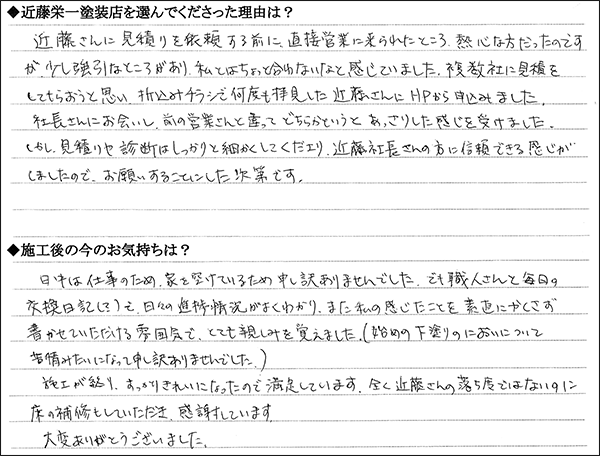 ◆近藤栄一塗装店を選んでくださった理由は？
近藤さんに見積りを依頼する前に、直接営業に来られたところ、熱心な方だったのです
が、少し強引なところがあり、私とはちょっと合わないなと感じていました。複数社に見積を
してもらおうと思い、折込みチラシで何度も拝見した近藤さんにHPから申込みました。
社長さんにお会いし、前の営業さんと違ってどちらかというとあっさりした感じを受けました。
しかし、見積りや診断はしっかりと細かくしてくださり、近藤社長さんの方に信頼できる感じが
しましたので、お願いすることにした次第です。
◆施工後の今のお気持ちは？
日中は仕事のため、家を空けているため申し訳ありませんでした。でも職人さんと毎日の
交換日記(?)で、日々の進捗情況がよくわかり、また私の感じたことを素直にかくさず
書かせていただける雰囲気で、とても親しみを覚えました。(始めの下塗りのにおいについて
苦情みたいになって申し訳ありませんでした。)
施工が終り、すっかりきれいになったので満足しています。全く近藤さんの落ち度ではないのに
床の補修もしていただき、感謝しています。
大変ありがとうございました。